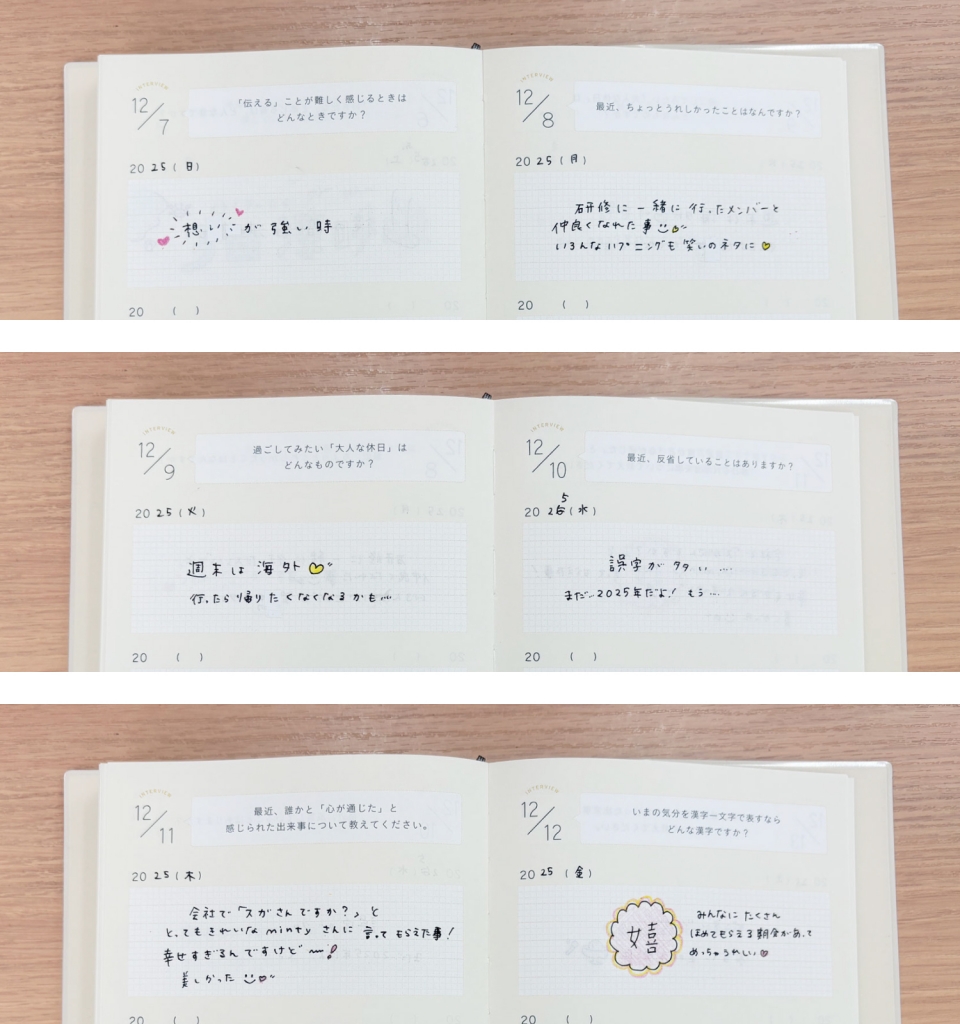 INTERVIEW
12/7
「伝える」ことが難しく感じるときは
どんなときですか?
2025(日)
想いが強い時
20 ( )
INTERVIEW
12/8
最近、ちょっとうれしかったことはなんですか?
2025(月)
研修に一緒に行ったメンバーと
仲良くなれた事
いろんなハプニングも笑いのネタに
20 ( )
INTERVIEW
12/9
過ごしてみたい「大人な休日」は
どんなものですか?
2025(火)
週末は海外
行ったら帰りたくなくなるかも…
20 ( )
INTERVIEW
12/10
最近、反省していることはありますか?
2025(水)
誤字が多い…
まだ…2025年だよ!もう…
20 ( )
INTERVIEW
12/11
最近、誰かと「心が通じた」と
感じられた出来事について教えてください。
2025(木)
会社で「スガさんですか?」と
とってもきれいなmintyさんに言ってもらえた事!
幸せすぎるんですけど〜!
美しかった
20 ( )
INTERVIEW
12/12
いまの気分を漢字一文字で表すなら
どんな漢字ですか?
2025(金)
嬉
みんなにたくさん
ほめてもらえる朝会があって
めっちゃうれしい
20 ( )